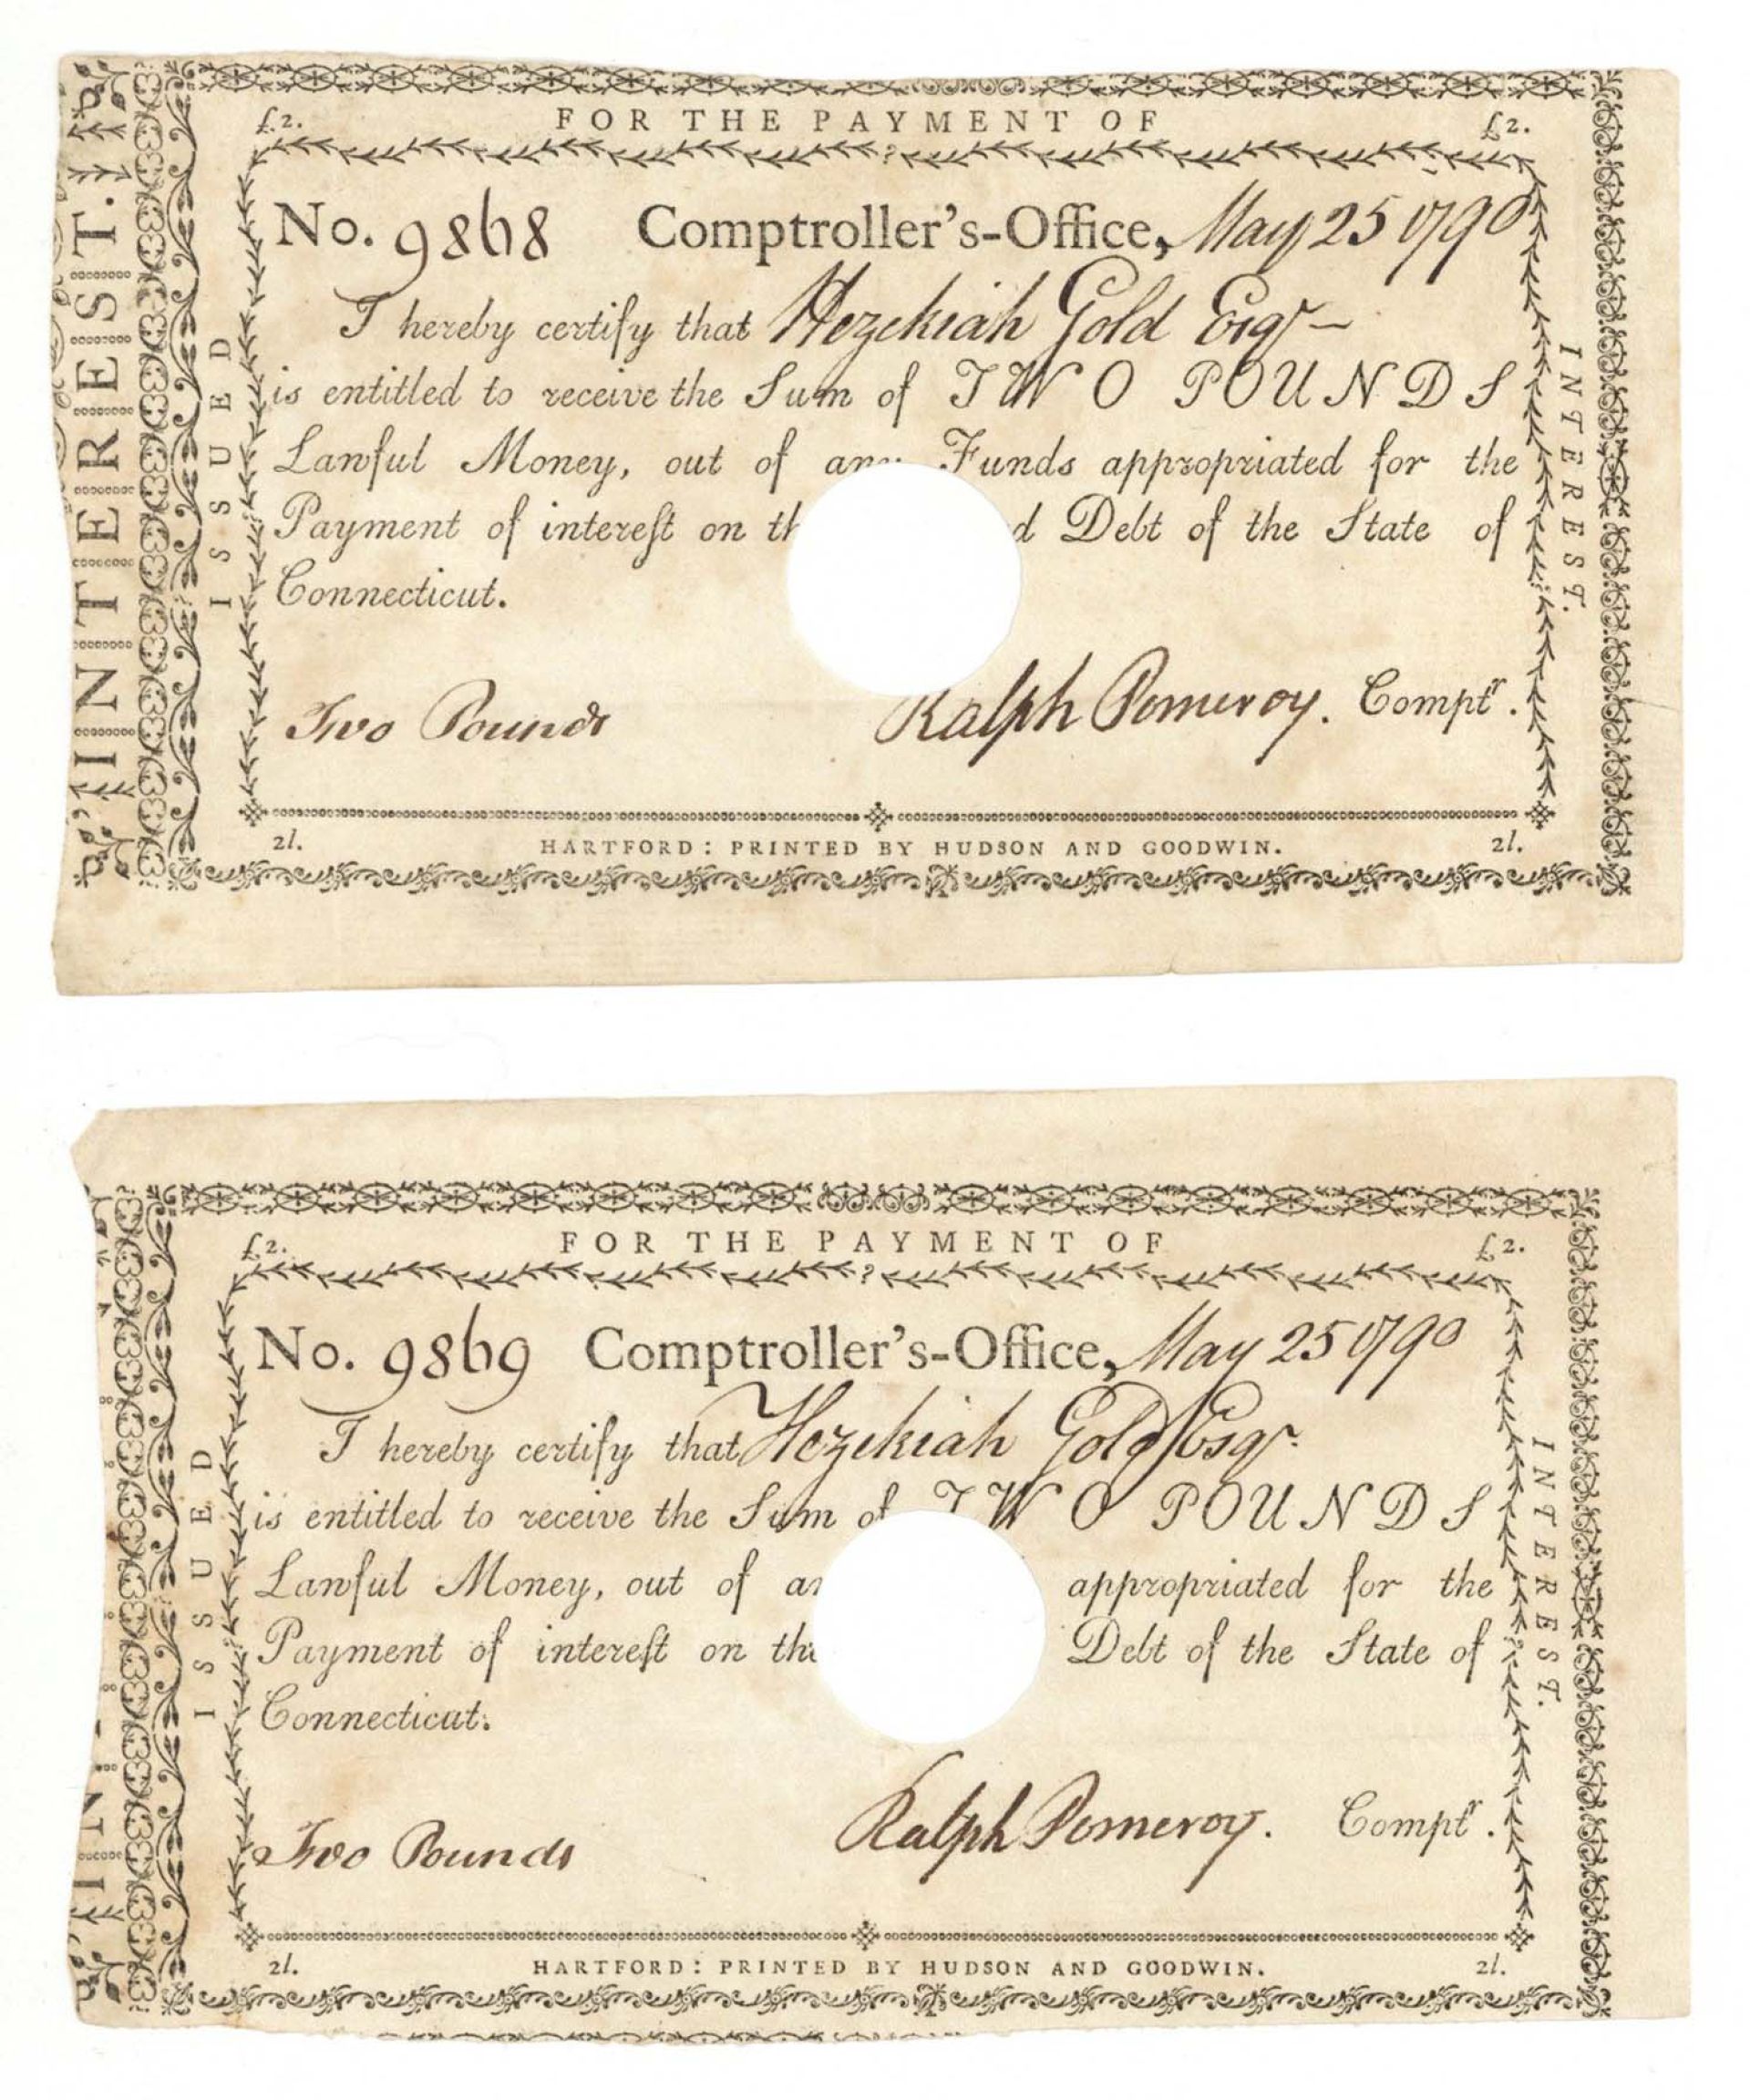 £2. FOR THE PAYMENT OF £2.
INTEREST.
ISSUED
INTEREST.
No. 9868 Comptroller's-Office, May 25 1790
I hereby certify that Hezekiah Gold Esqr
is entitled to receive the Sum of TWO POUNDS
Lawful Money, out of any Funds appropriated for the
Payment of interest on th d Debt of the State of
Connecticut.
Two Pounds Ralph Pomeroy. Comptr.
2l. HARTFORD: PRINTED BY HUDSON AND GOODWIN. 2l.
£2. FOR THE PAYMENT OF £2.
ISSUED
INTEREST.
No. 9869 Comptroller's-Office, May 25 1790
I hereby certify that Hezekiah Gold Esqr.
is entitled to receive the Sum of TWO POUNDS
Lawful Money, out of appropriated for the
Payment of interest on the Debt of the State of
Connecticut.
Two Pounds Ralph Pomeroy. Comptr.
2l. HARTFORD: PRINTED BY HUDSON AND GOODWIN. 2l.